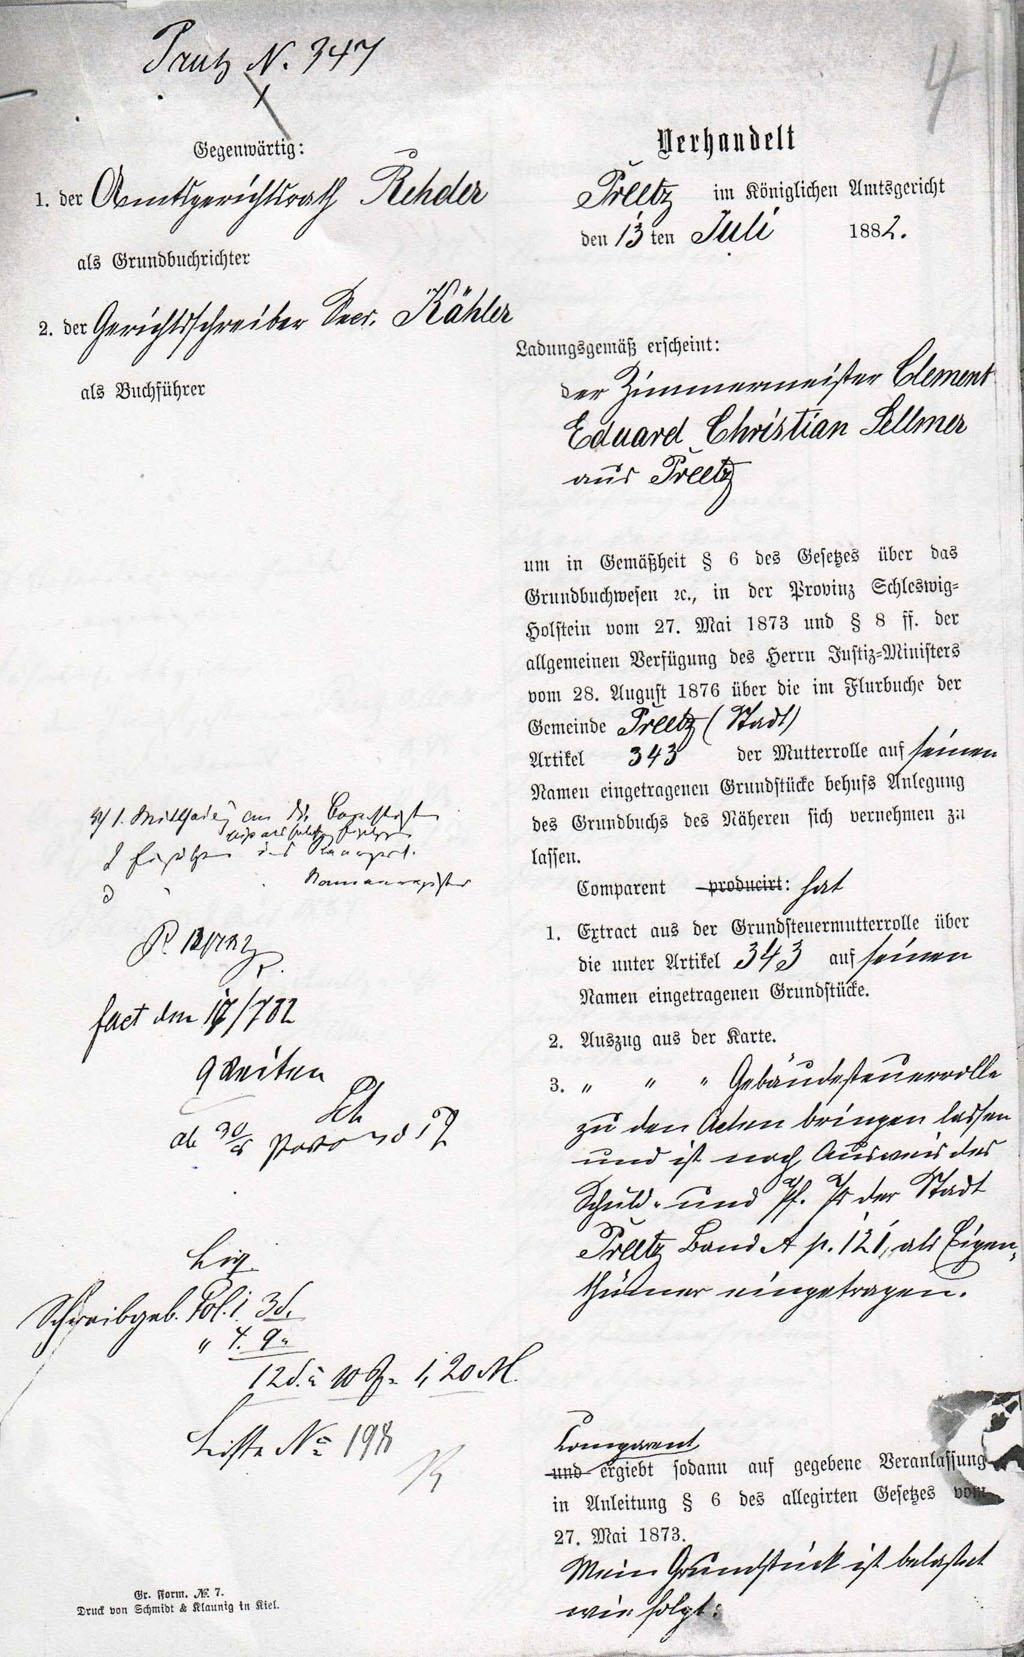 N. 347
4
Gegenwärtig:
1. der Amtsgerichtsrath Rehder
als Grundbuchrichter
2. der Gerichtsschreiber Secr. Kähler
als Buchführer
Verhandelt
Preetz im Königlichen Amtsgericht
den 13 ten Juli 1882.
Ladungsgemäß erscheint:
der Zimmermeister Clement
Eduard Christian Sellmer
aus Preetz
um in Gemäßheit § 6 des Gesetzes über das
Grundbuchwesen ꝛc., in der Provinz Schleswig-
Holstein vom 27. Mai 1873 und § 8 ff. der
allgemeinen Verfügung des Herrn Justiz-Ministers
vom 28. August 1876 über die im Flurbuche der
Gemeinde Preetz (Stadt)
Artikel 343 der Mutterrolle auf seinen
Namen eingetragenen Grundstücke behufs Anlegung
des Grundbuchs des Näheren sich vernehmen zu
lassen.
Comparent producirt: hat
1. Extract aus der Grundsteuermutterrolle über
die unter Artikel 343 auf seinen
Namen eingetragenen Grundstücke.
2. Auszug aus der Karte.
3. " " " Gebäudesteuerrolle
zu den Acten bringen lassen
und ist nach Ausweis des
Schuld- und Pf. Pr der Stadt
Preetz Band A p. 121, als Eigen-
thümer eingetragen.
Comparent
und ergiebt sodann auf gegebene Veranlassung
in Anleitung § 6 des allegirten Gesetzes vom
27. Mai 1873.
Mein Grundstück ist belastet
wie folgt:
fact den 17/7 82
Schreibgeb. Fol. 1 3 S.
" 4. 9 "
12 S. à 10 = 1,20 M.
Liste No 198
Gr. Form. № 7.
Druck von Schmidt & Klaunig in Kiel.